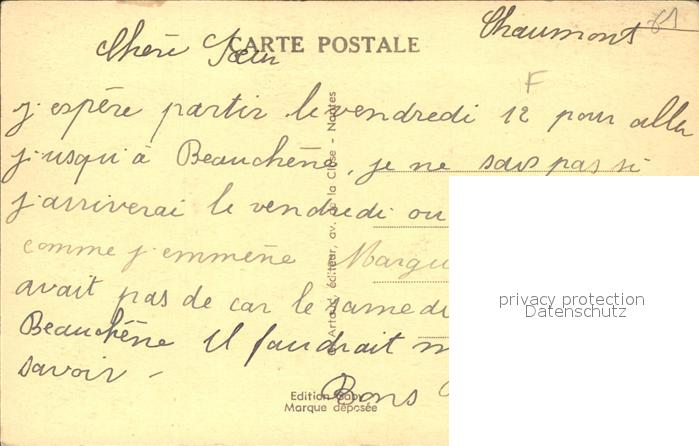 Chaumont
CARTE POSTALE
Chère Sœur
F
j'espère partir le vendredi 12 pour aller
jusqu'à Beauchêne, je ne sais pas si
j'arriverai le vendredi ou
comme j'emmène
avait pas de car le samedi
Beauchêne Il faudrait
savoir -
Bons
Artaud, éditeur, av. de la Close - Nantes
Edition Gaby
Marque déposée
privacy protection
Datenschutz